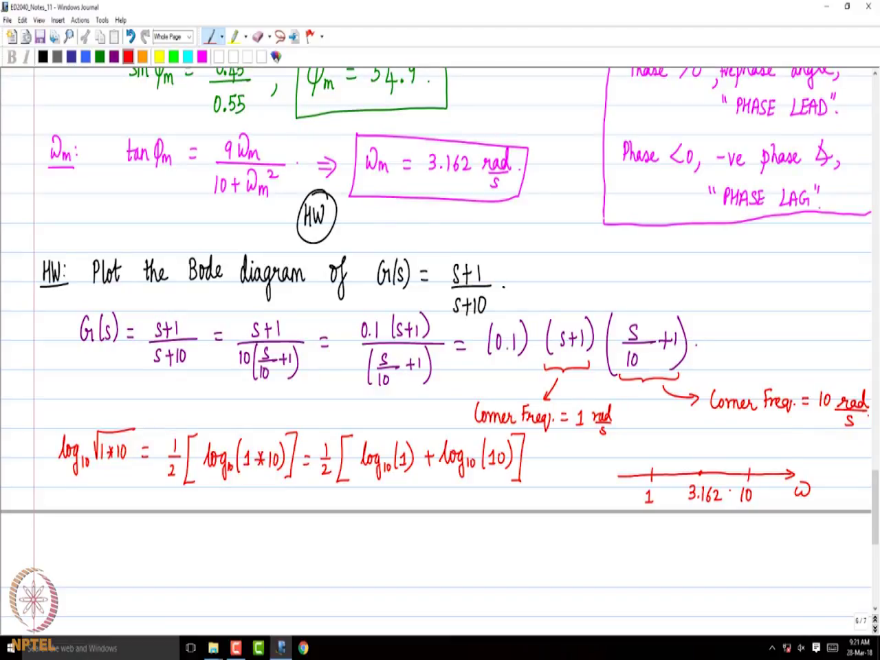 ED2040_Notes_11 - Windows Journal
File Edit View Insert Actions Tools Help
Whole Page
B I
sin φm = 0.45 / 0.55 , φm = 54.9°.
Phase >0, +ve phase angle,
"PHASE LEAD".
Phase <0, -ve phase ∡,
"PHASE LAG".
ωm: tan φm = 9ωm / (10 + ωm²) ⇒ ωm = 3.162 rad/s.
HW
HW: Plot the Bode diagram of G(s) = (s+1) / (s+10).
G(s) = (s+1) / (s+10) = (s+1) / (10(s/10 +1)) = 0.1 (s+1) / (s/10 +1) = (0.1) (s+1) (s/10 +1).
Corner Freq. = 1 rad/s
Corner Freq. = 10 rad/s
log₁₀ √(1*10) = 1/2 [log₁₀(1*10)] = 1/2 [log₁₀(1) + log₁₀(10)]
1 3.162 10 ω
6 / 7
NPTEL
the web and Windows
9:21 AM
28-Mar-18